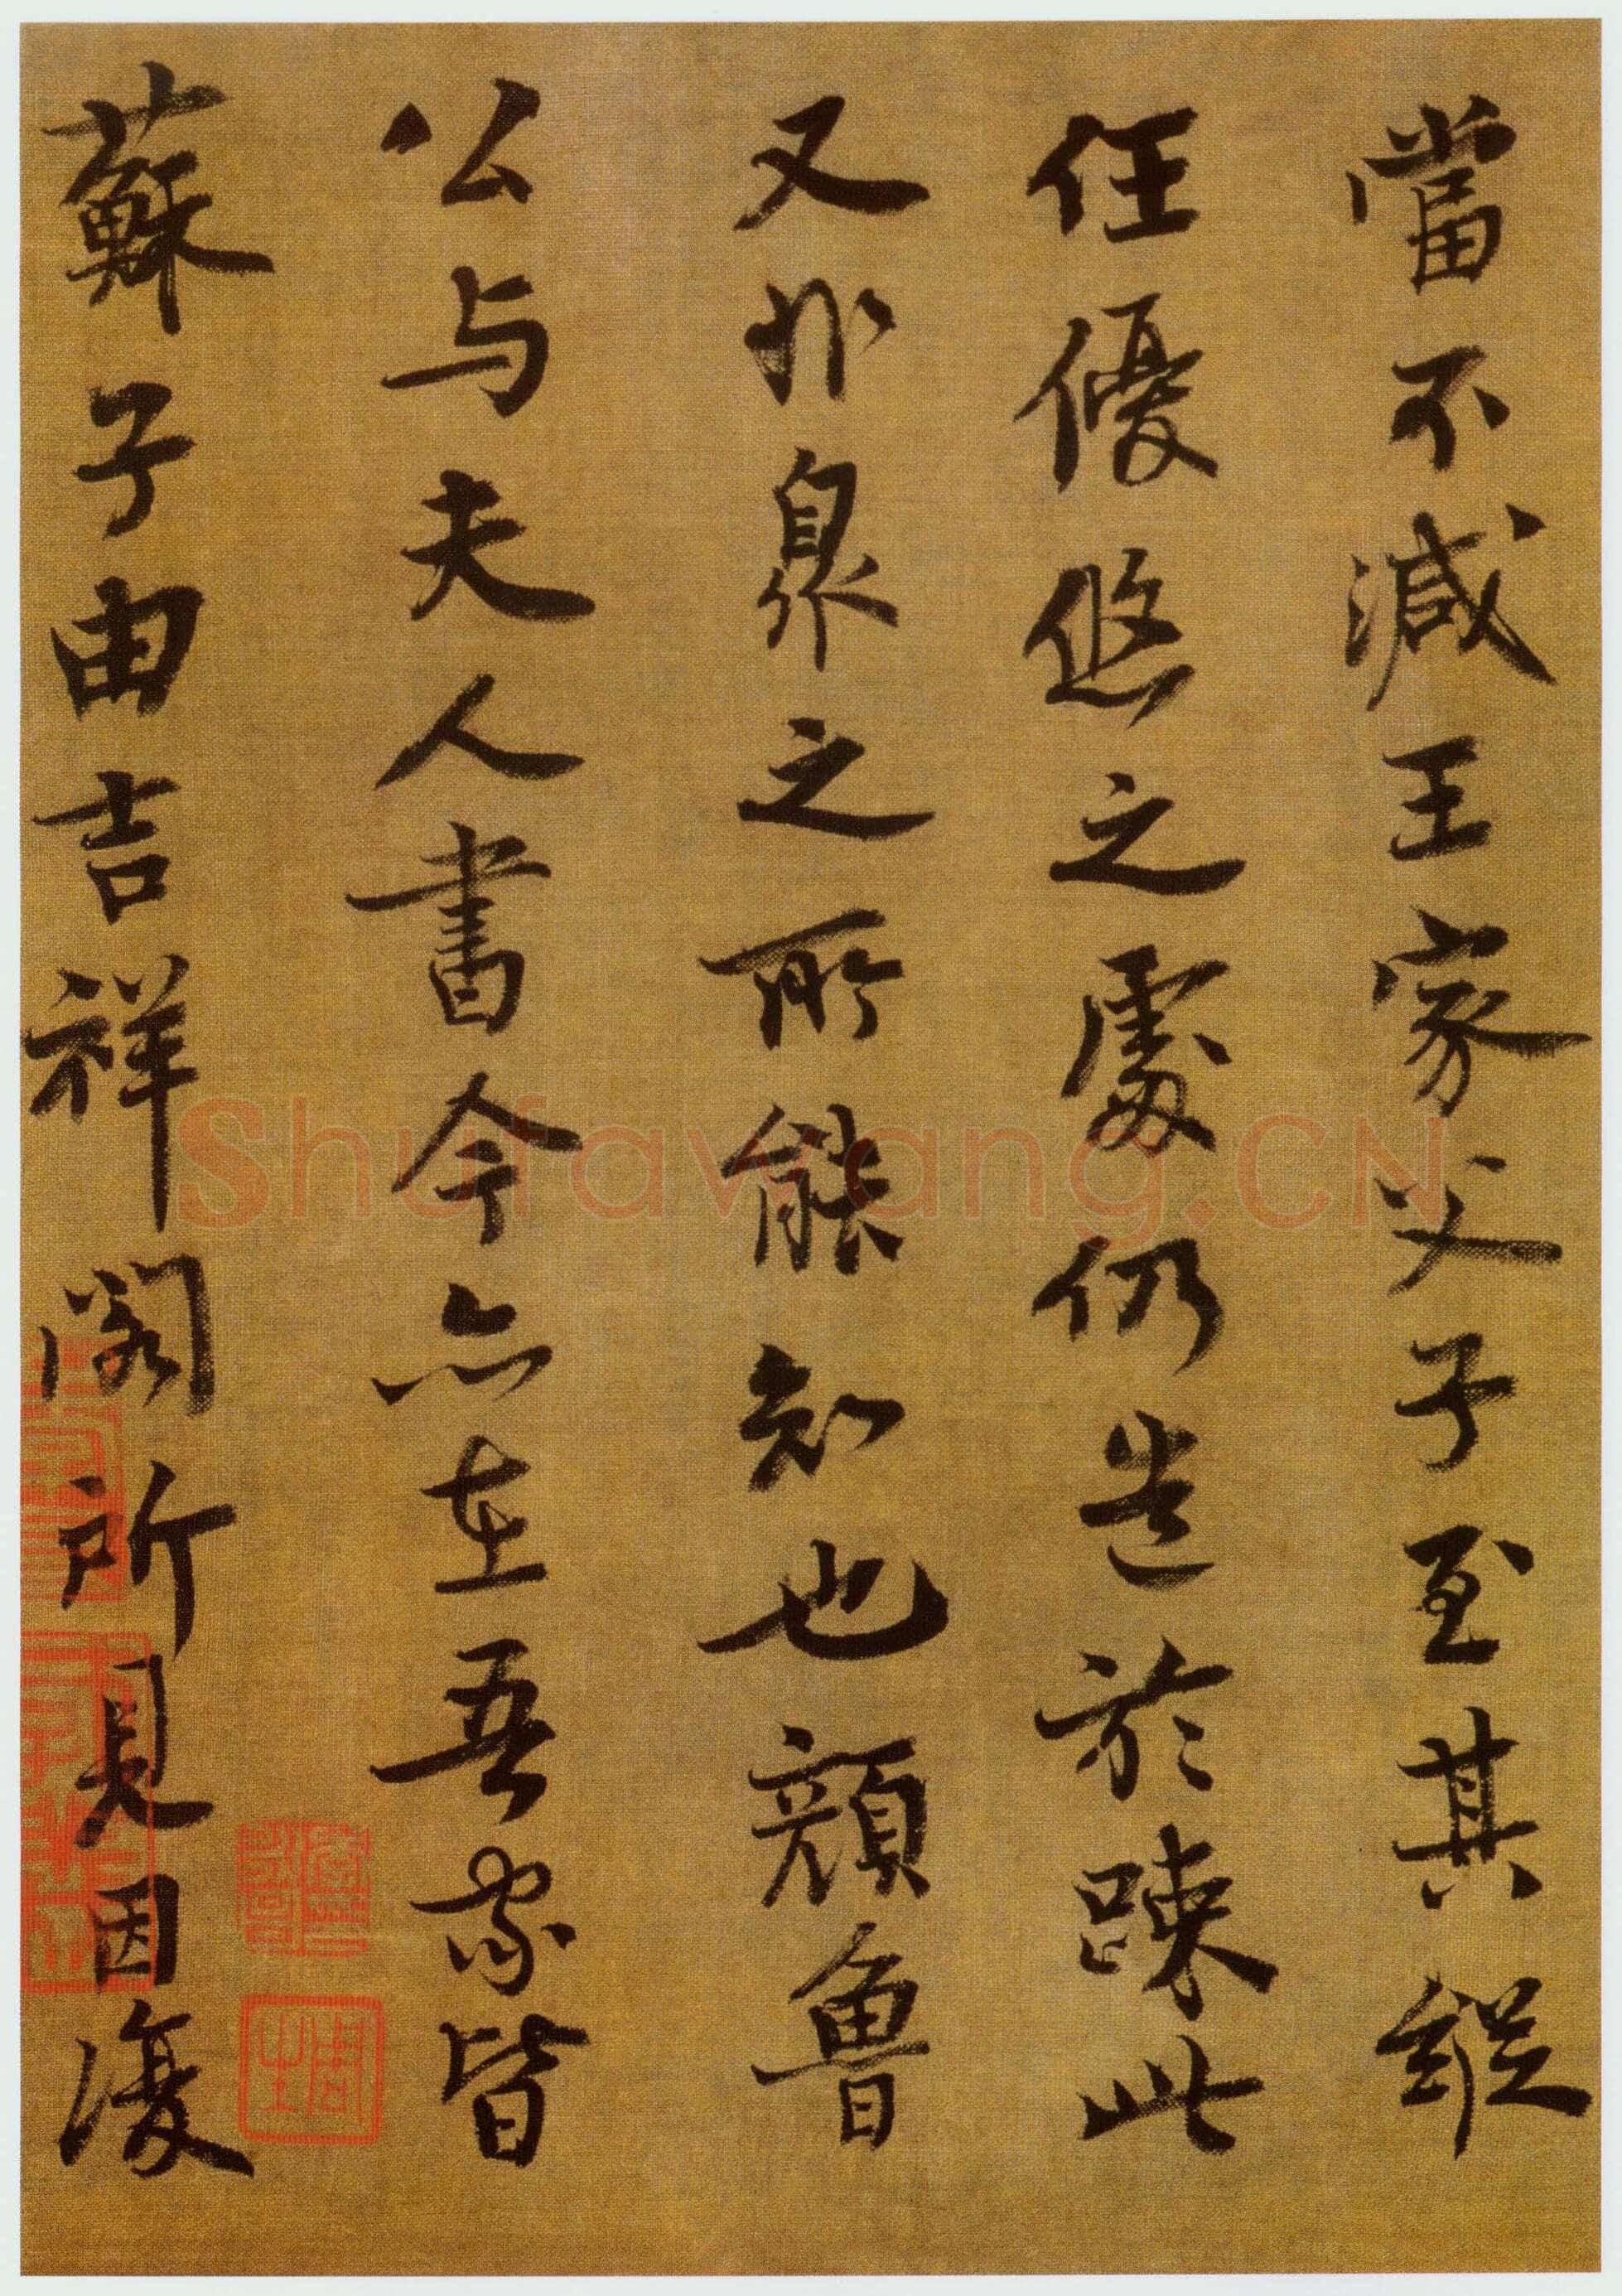 當不減王家父子至其縱
任優悠之處仍造於踈此
又非眾之所能知也顏魯
公与夫人書今亦在吾家皆
蘇子由吉祥閣所見因復
Shufawang.CN